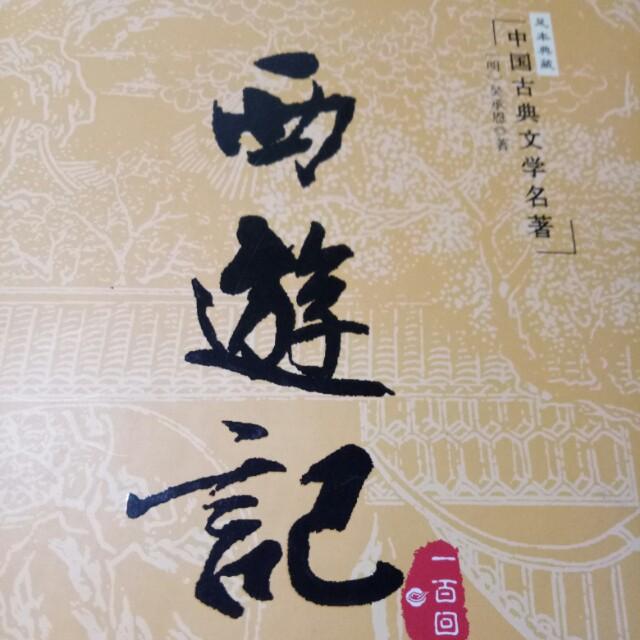 足本典藏
中国古典文学名著
〔明〕吴承恩◎著
西遊記
一百回